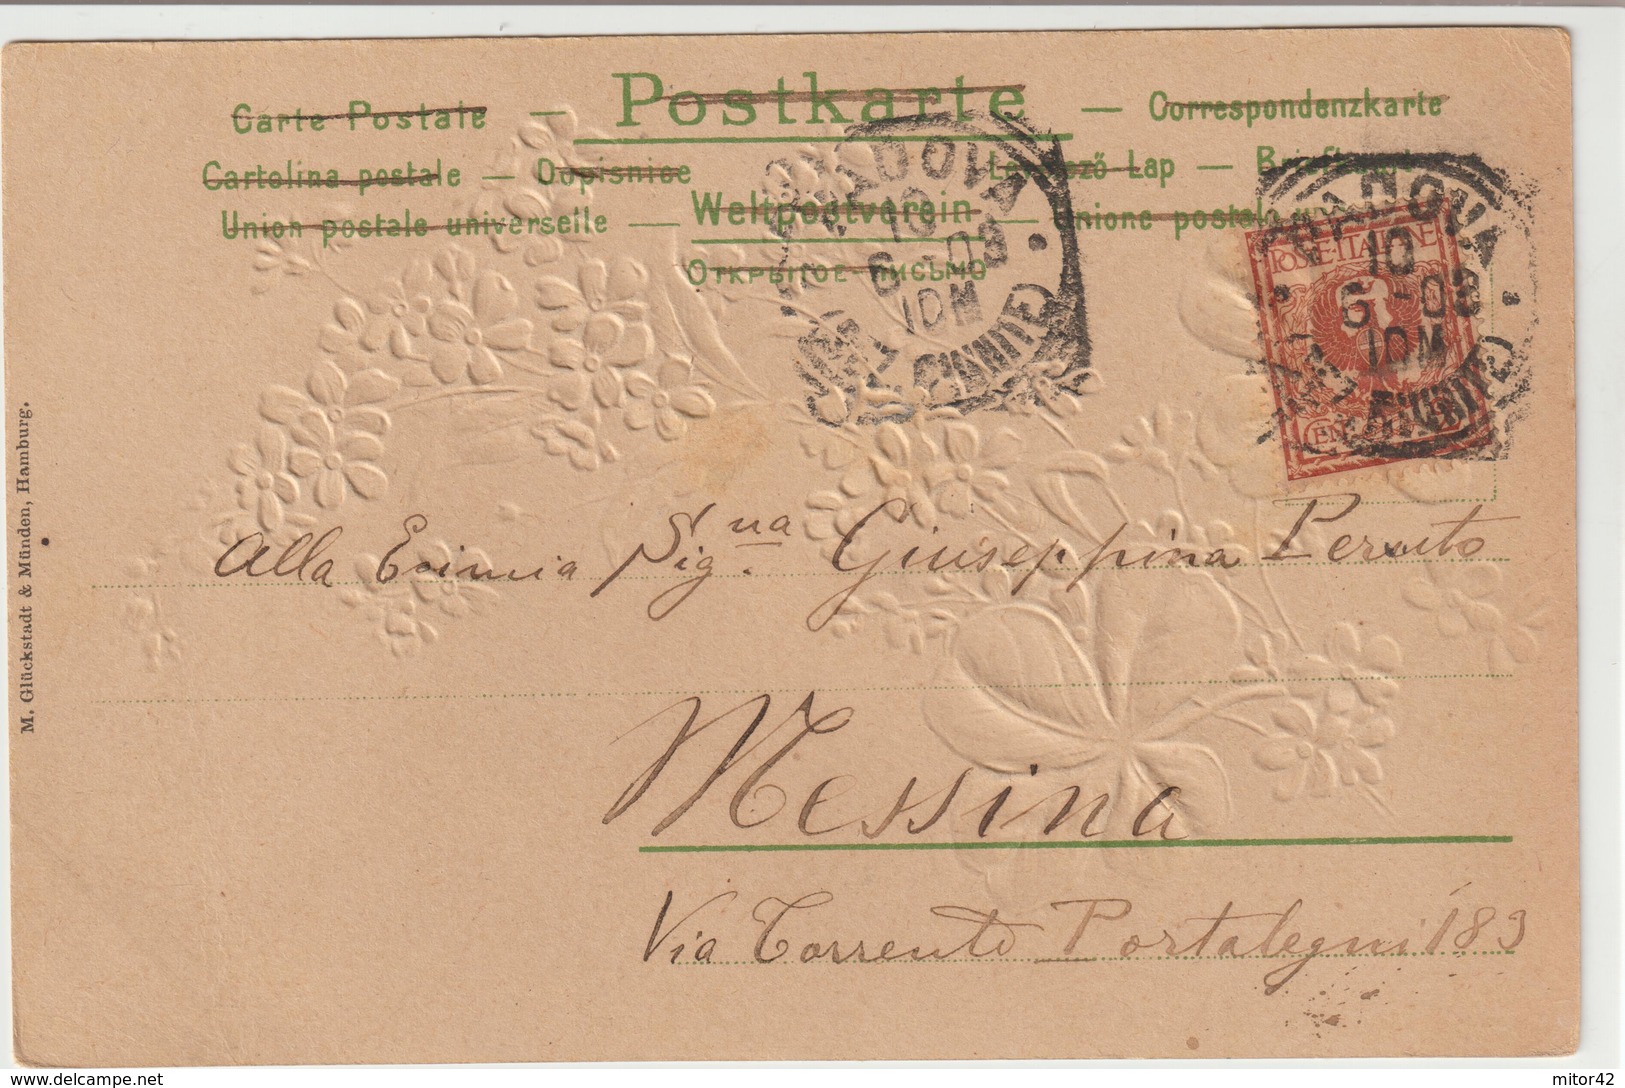 Carte Postale — Postkarte — Correspondenzkarte
Cartolina postale — Dopisnice Lap —
Union postale universelle — Weltpostverein — Unione postale
Открытое письмо
PADOVA
10
6 - 03
10M
POSTE ITALIANE
PADOVA
10
6 - 03
10M
M. Glückstadt & Münden, Hamburg.
Alla Esimia Sig.na Giuseppina
Messina
Via Torrente Portalegni 183
mitor42